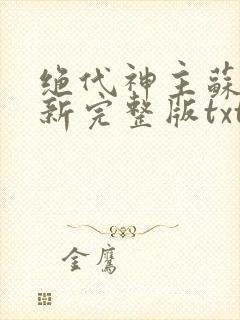 绝代神主蘇
新完整版txt
金鹰